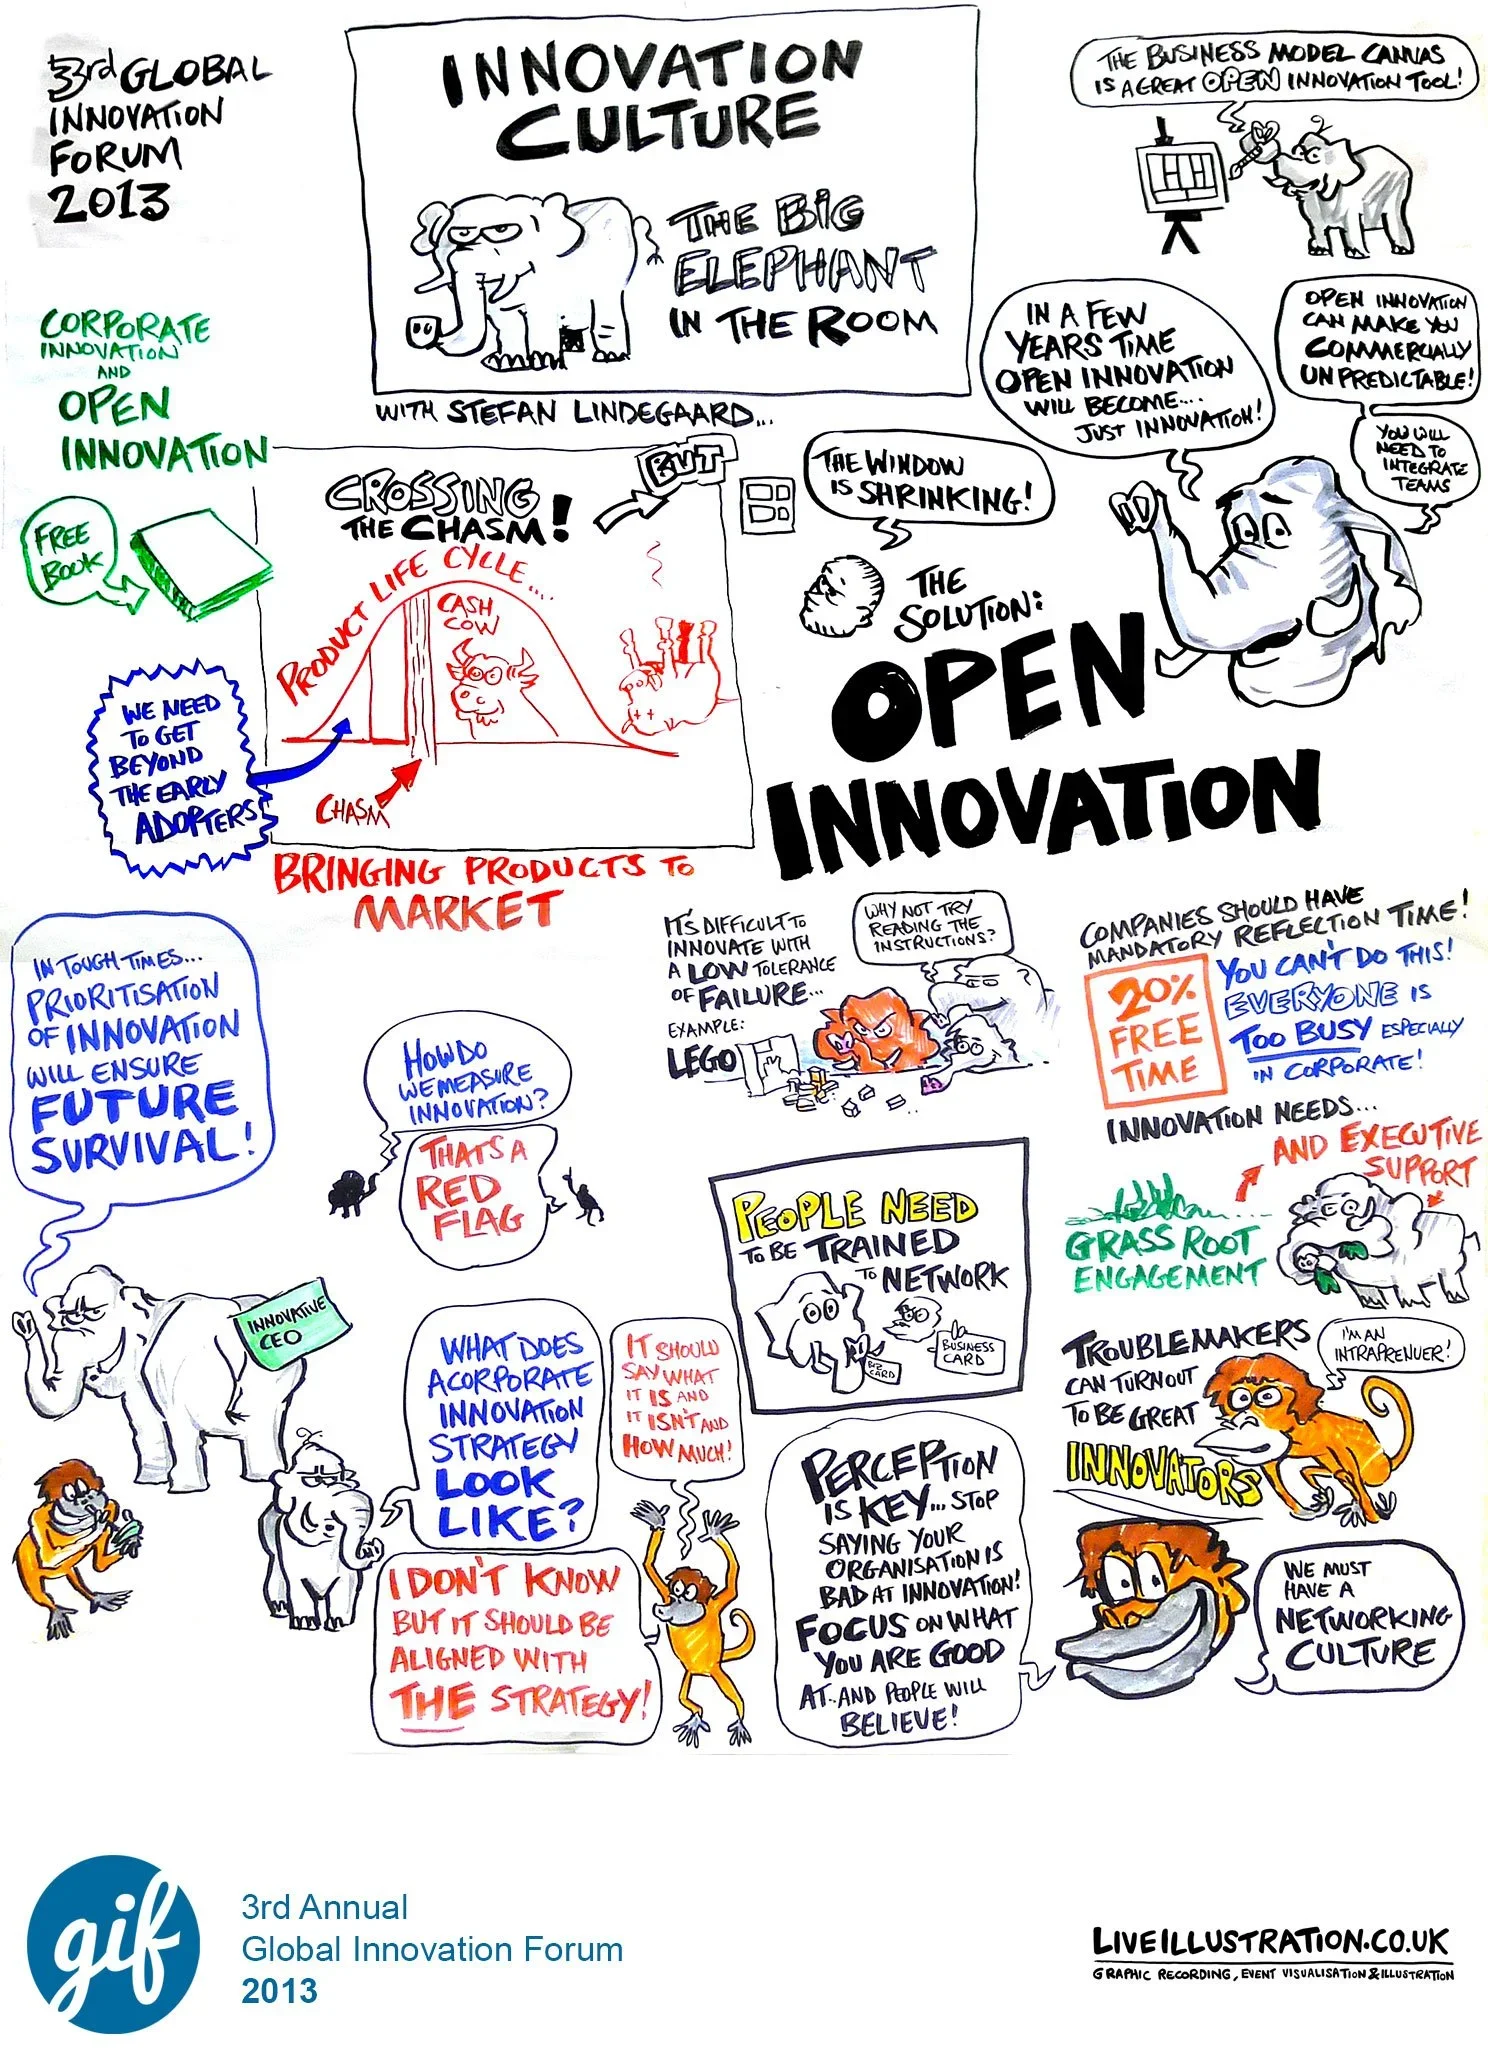 33rd GLOBAL
INNOVATION
FORUM
2013
INNOVATION
CULTURE
THE BIG
ELEPHANT
IN THE ROOM
WITH STEFAN LINDEGAARD...
THE BUSINESS MODEL CANVAS
IS A GREAT OPEN INNOVATION TOOL!
CORPORATE
INNOVATION
AND
OPEN
INNOVATION
FREE
BOOK
CROSSING
THE CHASM!
BUT
PRODUCT LIFE CYCLE....
CASH
COW
CHASM
WE NEED
TO GET
BEYOND
THE EARLY
ADOPTERS
BRINGING PRODUCTS TO
MARKET
THE WINDOW
IS SHRINKING!
IN A FEW
YEARS TIME
OPEN INNOVATION
WILL BECOME....
JUST INNOVATION!
OPEN INNOVATION
CAN MAKE YOU
COMMERCIALLY
UNPREDICTABLE!
YOU WILL
NEED TO
INTEGRATE
TEAMS
THE
SOLUTION:
OPEN
INNOVATION
IN TOUGH TIMES...
PRIORITISATION
OF INNOVATION
WILL ENSURE
FUTURE
SURVIVAL!
INNOVATIVE
CEO
HOW DO
WE MEASURE
INNOVATION?
THATS A
RED
FLAG
IT'S DIFFICULT TO
INNOVATE WITH
A LOW TOLERANCE
OF FAILURE...
EXAMPLE:
LEGO
WHY NOT TRY
READING THE
INSTRUCTIONS?
COMPANIES SHOULD HAVE
MANDATORY REFLECTION TIME!
20%
FREE
TIME
YOU CAN'T DO THIS!
EVERYONE IS
TOO BUSY ESPECIALLY
IN CORPORATE!
INNOVATION NEEDS...
AND EXECUTIVE
SUPPORT
GRASS ROOT
ENGAGEMENT
PEOPLE NEED
TO BE TRAINED
TO NETWORK
BIZ
CARD
BUSINESS
CARD
WHAT DOES
A CORPORATE
INNOVATION
STRATEGY
LOOK
LIKE?
IT SHOULD
SAY WHAT
IT IS AND
IT ISN'T AND
HOW MUCH!
I DON'T KNOW
BUT IT SHOULD BE
ALIGNED WITH
THE STRATEGY!
PERCEPTION
IS KEY... STOP
SAYING YOUR
ORGANISATION IS
BAD AT INNOVATION!
FOCUS ON WHAT
YOU ARE GOOD
AT.. AND PEOPLE WILL
BELIEVE!
TROUBLEMAKERS
CAN TURNOUT
TO BE GREAT
INNOVATORS
I'M AN
INTRAPRENUER!
WE MUST
HAVE A
NETWORKING
CULTURE
gif
3rd Annual
Global Innovation Forum
2013
LIVEILLUSTRATION.CO.UK
GRAPHIC RECORDING, EVENT VISUALISATION & ILLUSTRATION